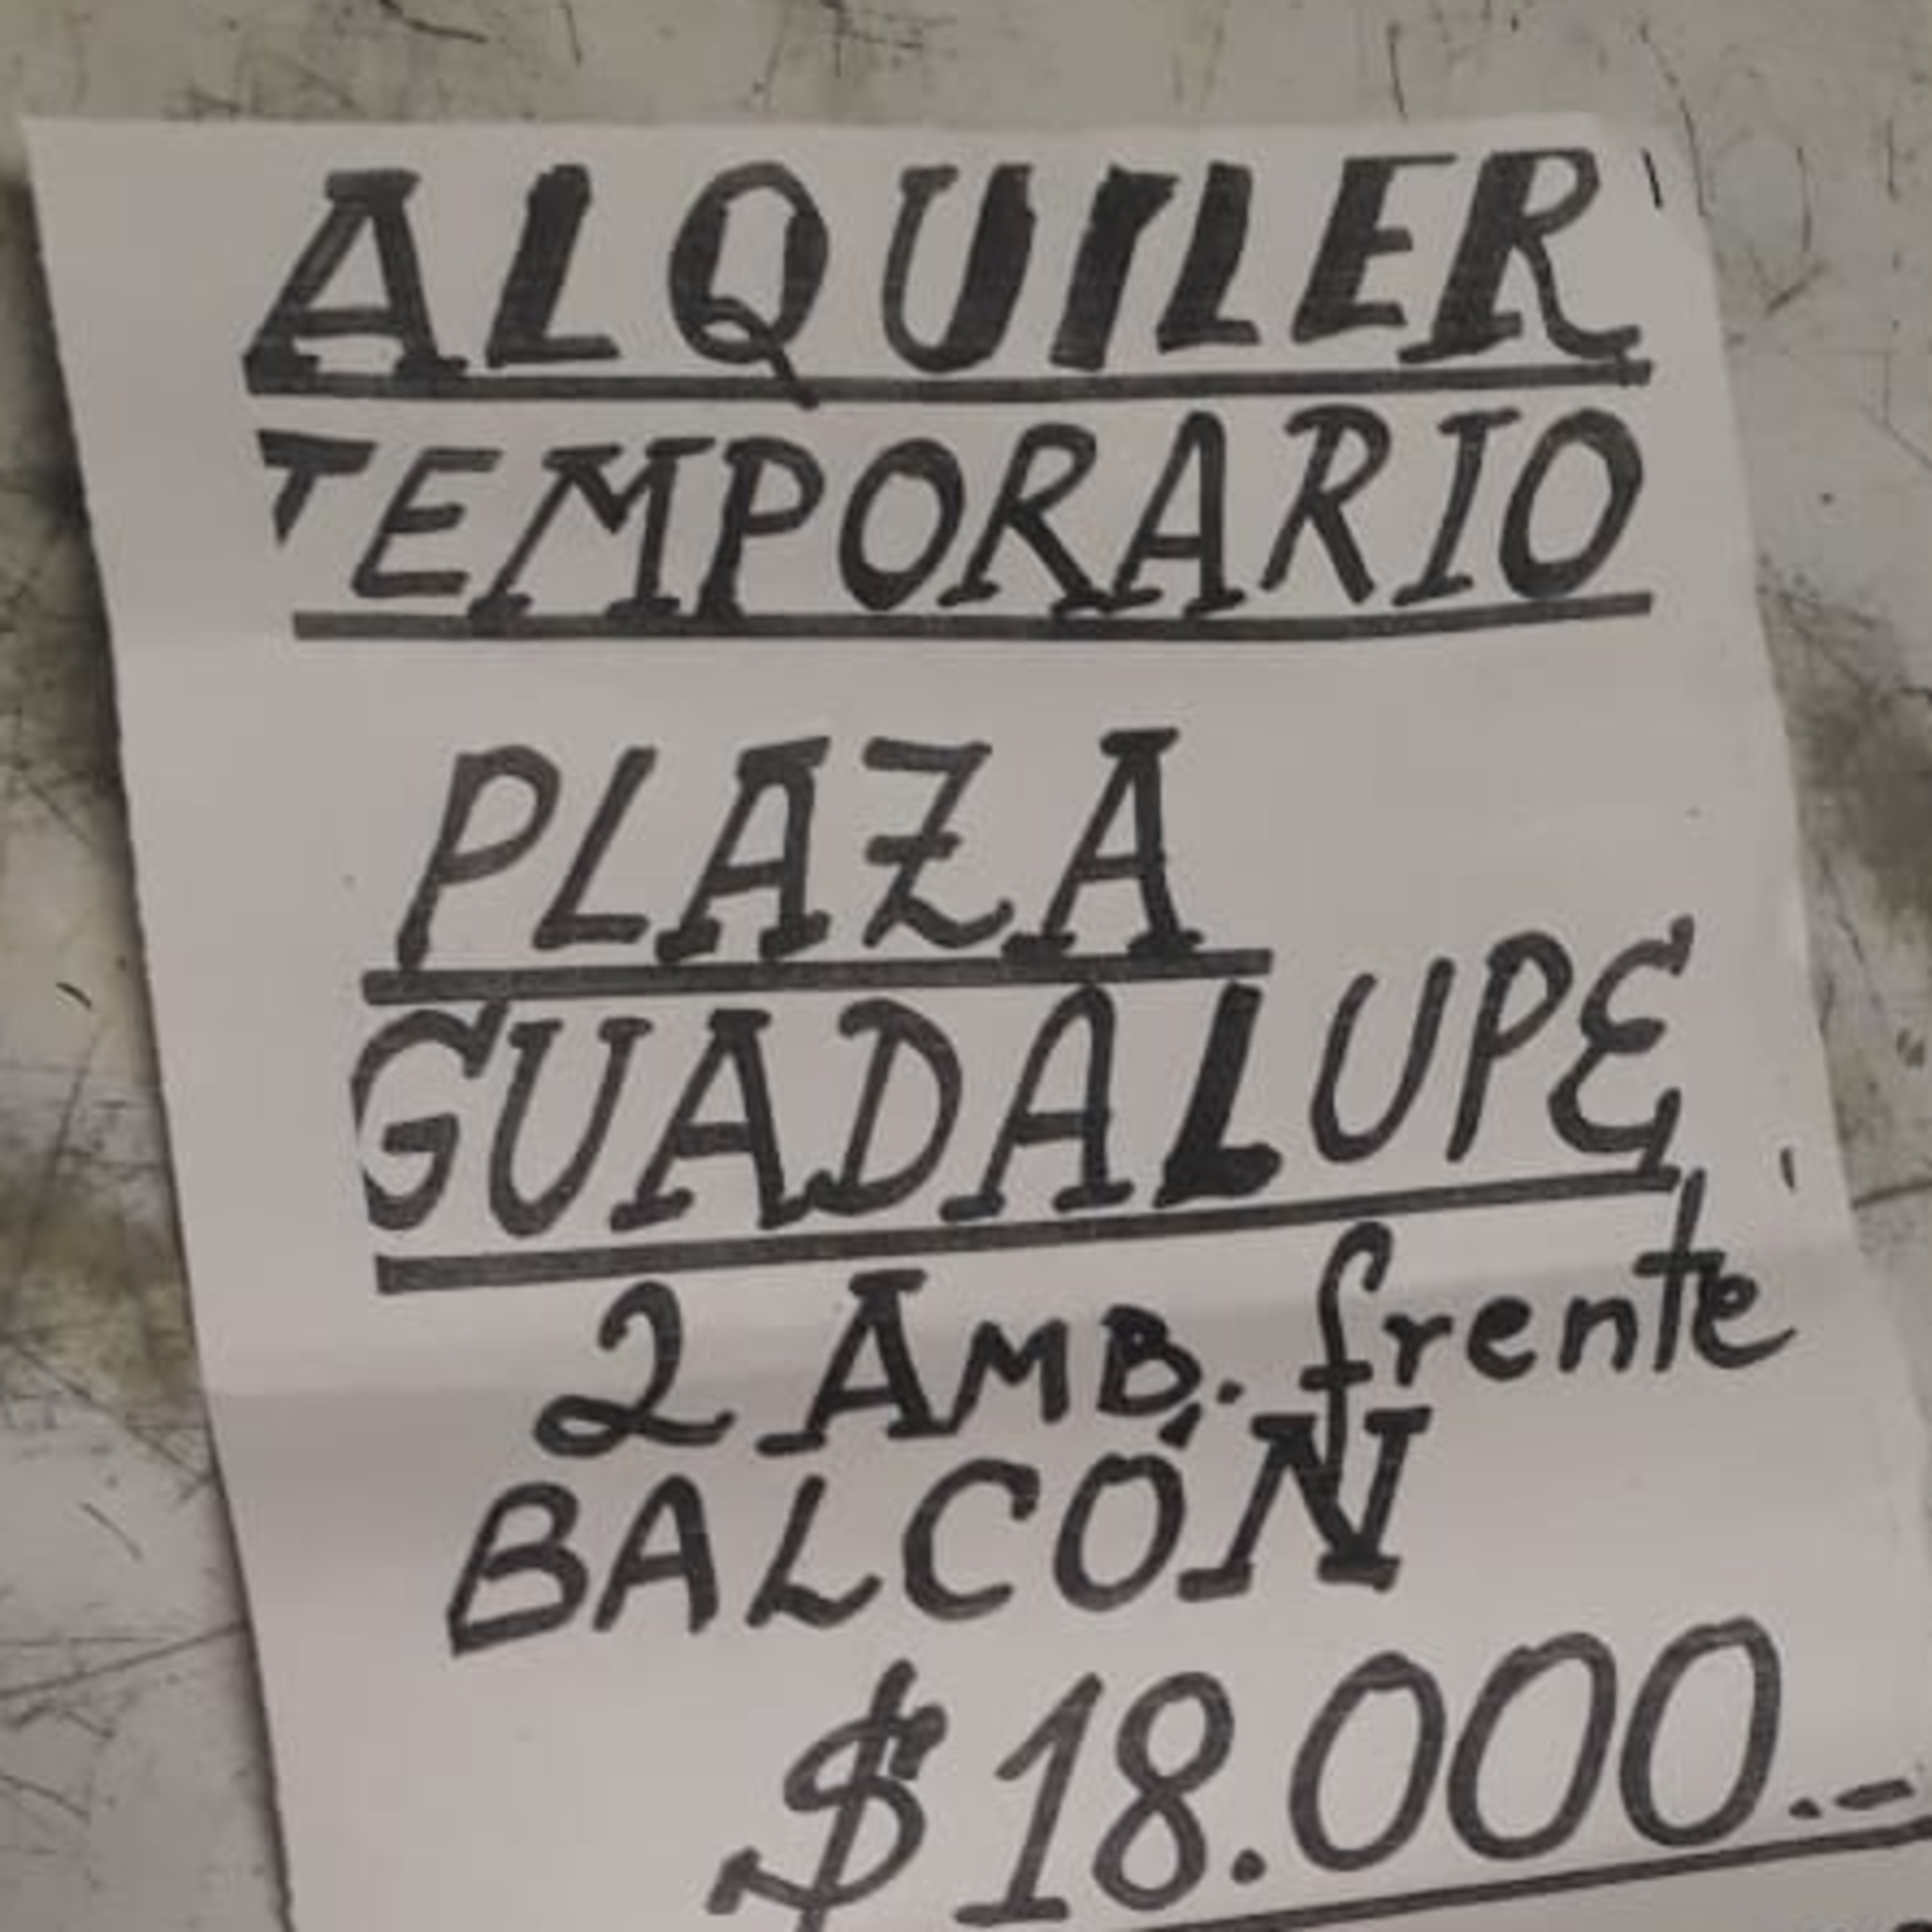 ALQUILER
TEMPORARIO
PLAZA
GUADALUPE
2 AMB. frente
BALCÓN
$18.000.-